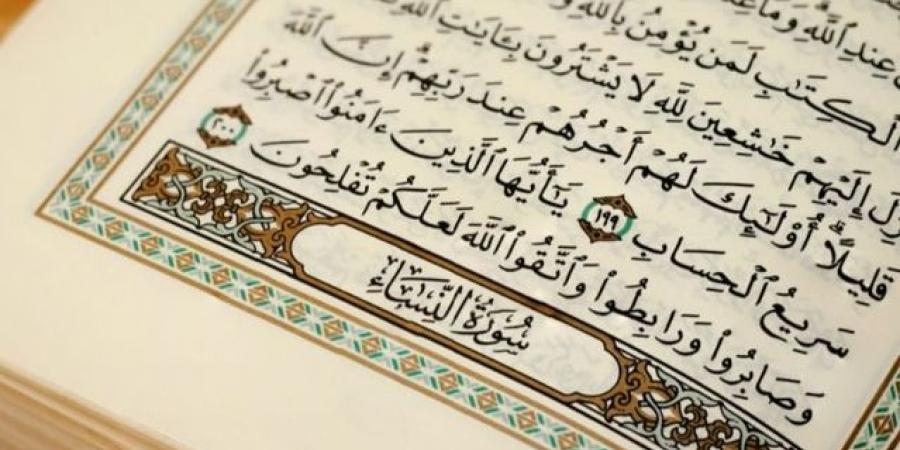 عِندِ ٱللَّهِ وَمَا عِندَ
ٱلۡكِتَٰبِ لَمَن يُؤۡمِنُ بِٱللَّهِ وَ
إِلَيۡهِمۡ خَٰشِعِينَ لِلَّهِ لَا يَشۡتَرُونَ بِـَٔايَٰتِ ٱللَّهِ
قَلِيلًاۚ أُوْلَٰٓئِكَ لَهُمۡ أَجۡرُهُمۡ عِندَ رَبِّهِمۡۗ إِنَّ ٱللَّهَ
سَرِيعُ ٱلۡحِسَابِ ١٩٩ يَٰٓأَيُّهَا ٱلَّذِينَ ءَامَنُواْ ٱصۡبِرُواْ
وَصَابِرُواْ وَرَابِطُواْ وَٱتَّقُواْ ٱللَّهَ لَعَلَّكُمۡ تُفۡلِحُونَ ٢٠٠
سُورَةُ ٱلنِّسَاءِ